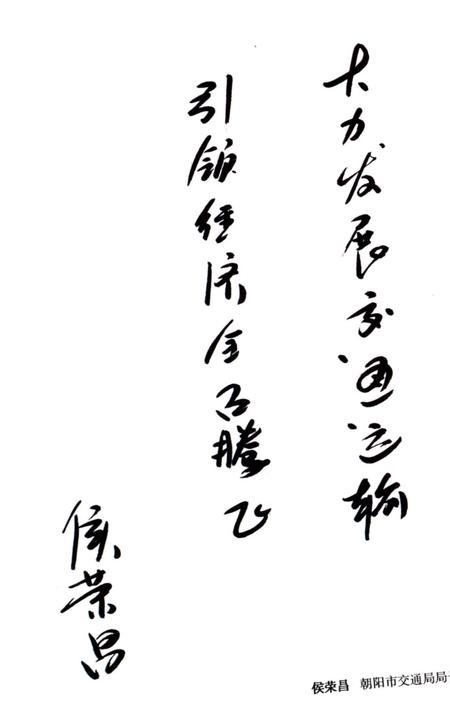 大力发展交通运输
引领经济全面腾飞
侯荣昌
侯荣昌 朝阳市交通局局